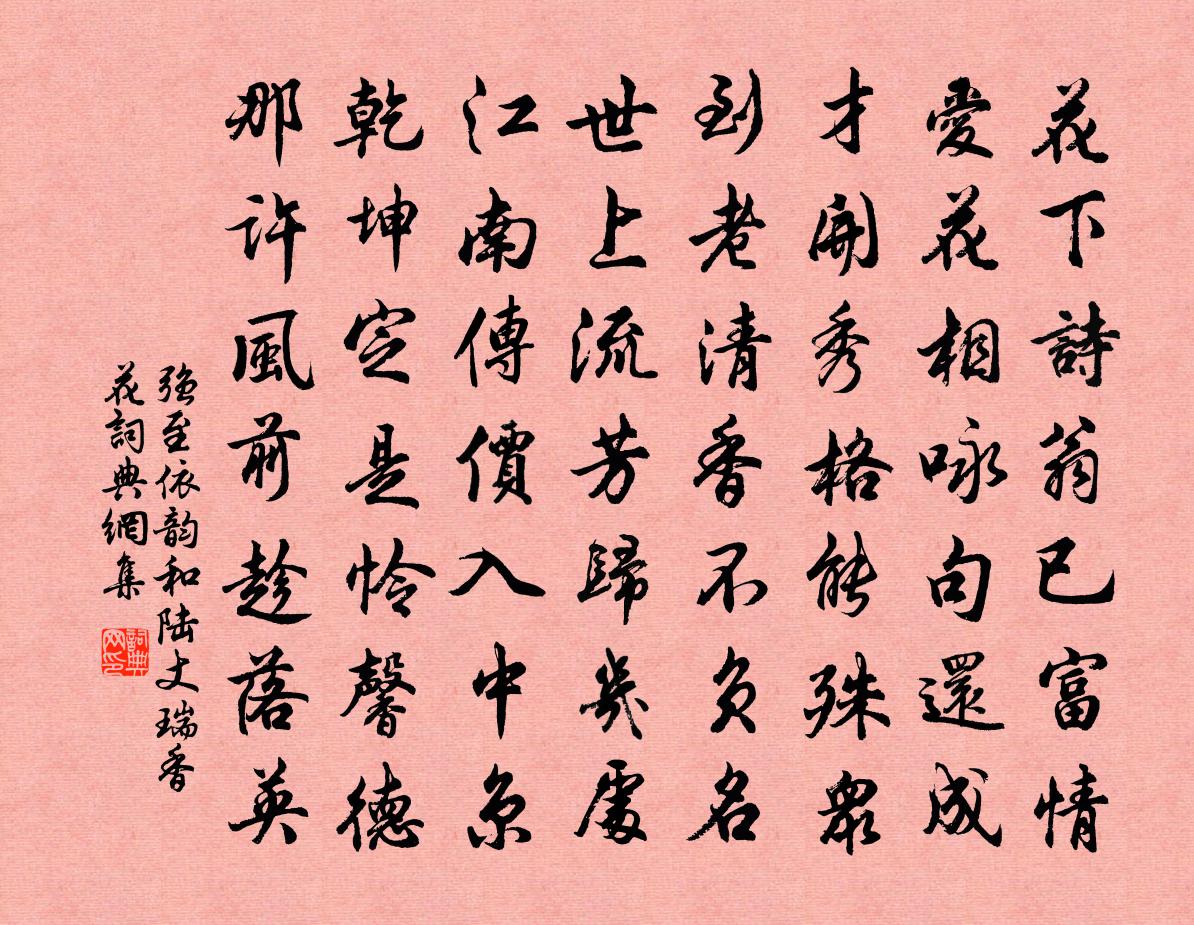 花下詩翁已富情
愛花相咏句還成
才開秀格能殊眾
到老清香不負名
世上流芳歸幾處
江南傳價入中京
乾坤定是怜馨德
那許風前趁落英
強至依韵和陆丈瑞香
花詞典網集
詞典网印